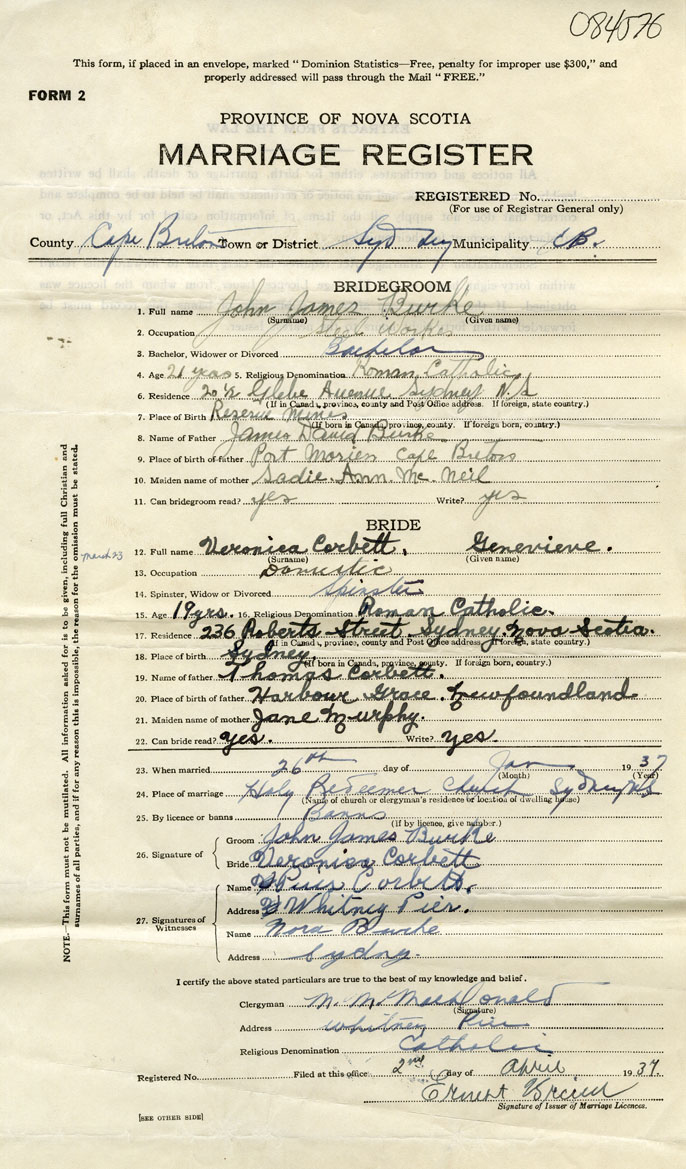 084576
This form, if placed in an envelope, marked "Dominion Statistics—Free, penalty for improper use $300," and
properly addressed will pass through the Mail "FREE."
FORM 2
PROVINCE OF NOVA SCOTIA
MARRIAGE REGISTER
REGISTERED No.
(For use of Registrar General only)
County Cape Breton Town or District Sydney Municipality C.B.
BRIDEGROOM
1. Full name John James Burke
(Surname) (Given name)
2. Occupation Steel Worker
3. Bachelor, Widower or Divorced Bachelor
4. Age 21 years 5. Religious Denomination Roman Catholic
6. Residence Glebe Avenue Sydney N.S
(If in Canada, province, county and Post Office address. If foreign, state country.)
7. Place of Birth Reserve Mines
(If born in Canada, province, county. If foreign born, country.)
8. Name of Father James David Burke
9. Place of birth of father Port Morien Cape Breton
10. Maiden name of mother Sadie Ann Mc Neil
11. Can bridegroom read? yes Write? yes
BRIDE
March 23
12. Full name Veronica Corbett, Genevieve.
(Surname) (Given name)
13. Occupation Domestic
14. Spinster, Widow or Divorced Spinster
15. Age 19 yrs. 16. Religious Denomination Roman Catholic.
17. Residence 236 Roberts Street Sydney Nova Scotia.
(If in Canada, province, county and Post Office address. If foreign, state country.)
18. Place of birth Sydney.
(If born in Canada, province, county. If foreign born, country.)
19. Name of father Thomas Corbett.
20. Place of birth of father Harbour Grace Newfoundland
21. Maiden name of mother Jane Murphy.
22. Can bride read? yes. Write? yes.
23. When married 26th day of Jan 1937
(Month) (Year)
24. Place of marriage Holy Redeemer Church Sydney NS
(Name of church or clergyman's residence or location of dwelling house)
25. By licence or banns Banns
(If by licence, give number.)
26. Signature of
Groom John James Burke
Bride Veronica Corbett
27. Signatures of Witnesses
Name Pius Corbett.
Address Whitney Pier.
Name Nora Burke
Address Sydney.
I certify the above stated particulars are true to the best of my knowledge and belief.
Clergyman M. M. MacDonald
(Signature)
Address Whitney Pier
Religious Denomination Catholic
Registered No. Filed at this office 2nd day of April 1937.
Ernest
Signature of Issuer of Marriage Licences.
[SEE OTHER SIDE]
NOTE.—This form must not be mutilated. All information asked for is to be given, including full Christian and
surnames of all parties, and if for any reason this is impossible, the reason for the omission must be stated.